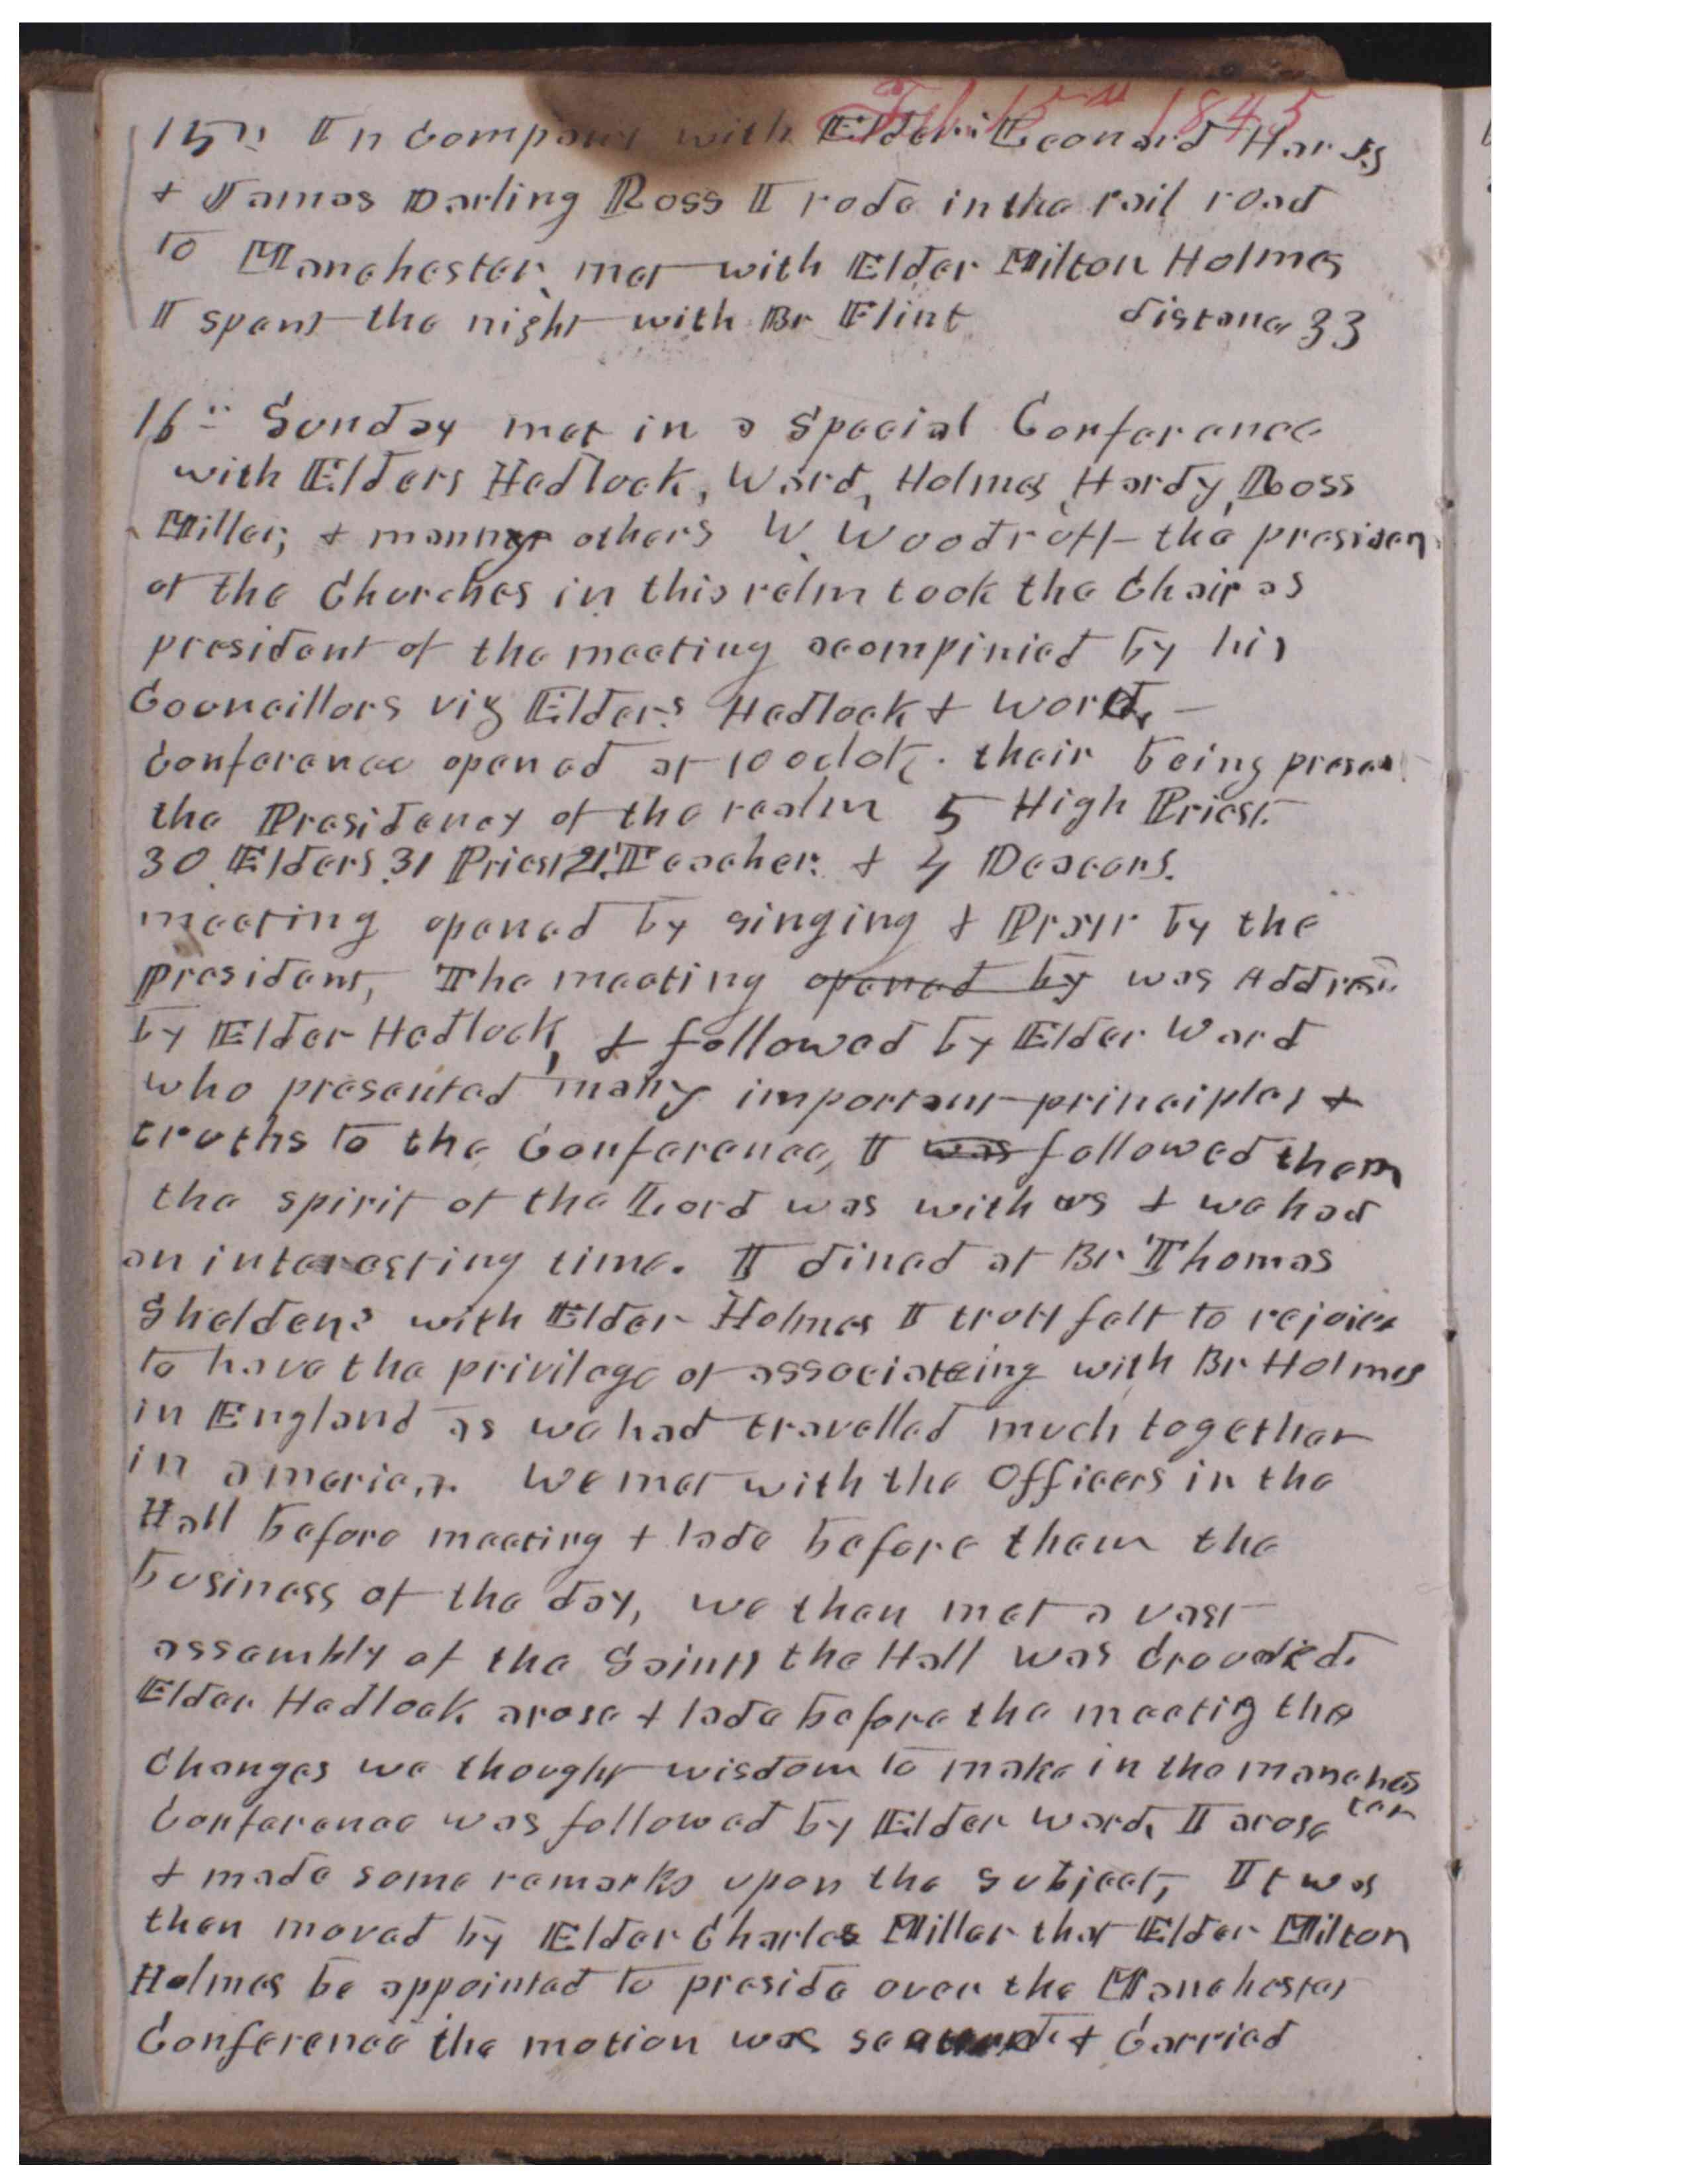 Feb 15th 1845
15th In Company with Elder Leonard Hardy
& James Darling Ross I rode in the rail road
to Manchester, met with Elder Milton Holmes
I spent the night with Br Flint distance 33
16th Sunday met in a Special Conference
with Elders Hedlock, Ward, Holmes, Hardy, Ross
Miller, & manny others W. Woodruff the presiden
of the Churches in this relm took the Chair as
president of the meeting acompinied by his
Councillors viz Elders Hedlock & Ward. —
Conference opened at 10 oclok. their being presen
the Presidency of the realm 5 High Priest
30 Elders 31 Priest 21 Teacher & 4 Deacons.
meeting opened by singing & Prayr by the
president, The meeting opened by was Address
by Elder Hedlock, & followed by Elder Ward
who presented many important principles &
truths to the Conference, I was followed them
the spirit of the Lord was with us & we had
an interesting time. I dined at Br Thomas
Sheldens with Elder Holmes I truly felt to rejoice
to have the privilege of associateing with Br Holmes
in England as we had travelled much together
in america. We met with the Officers in the
Hall before meeting & lade before them the
business of the day, we then met a vast
assembly of the Saints the Hall was Crouded.
Elder Hedlock arose & lade before the meetig the
Changes we thought wisdom to make in the manches
ter
Conference was followed by Elder Ward, I arose
& made some remarks upon the subject, It was
then moved by Elder Charles Miller that Elder Milton
Holmes be appointed to preside over the Manchester
Conference the motion was & Carried